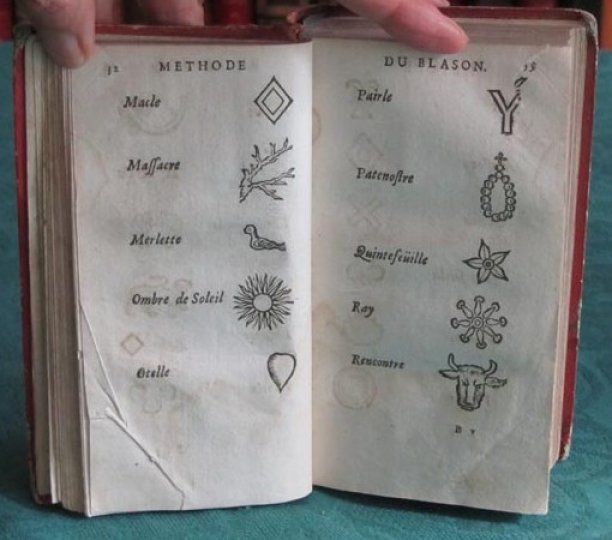 32 METHODE
Macle
Maſſacre
Merlette
Ombre de Soleil
Otelle
DU BLASON. 33
Pairle
Patenoſtre
Quintefeüille
Ray
Rencontre
B v